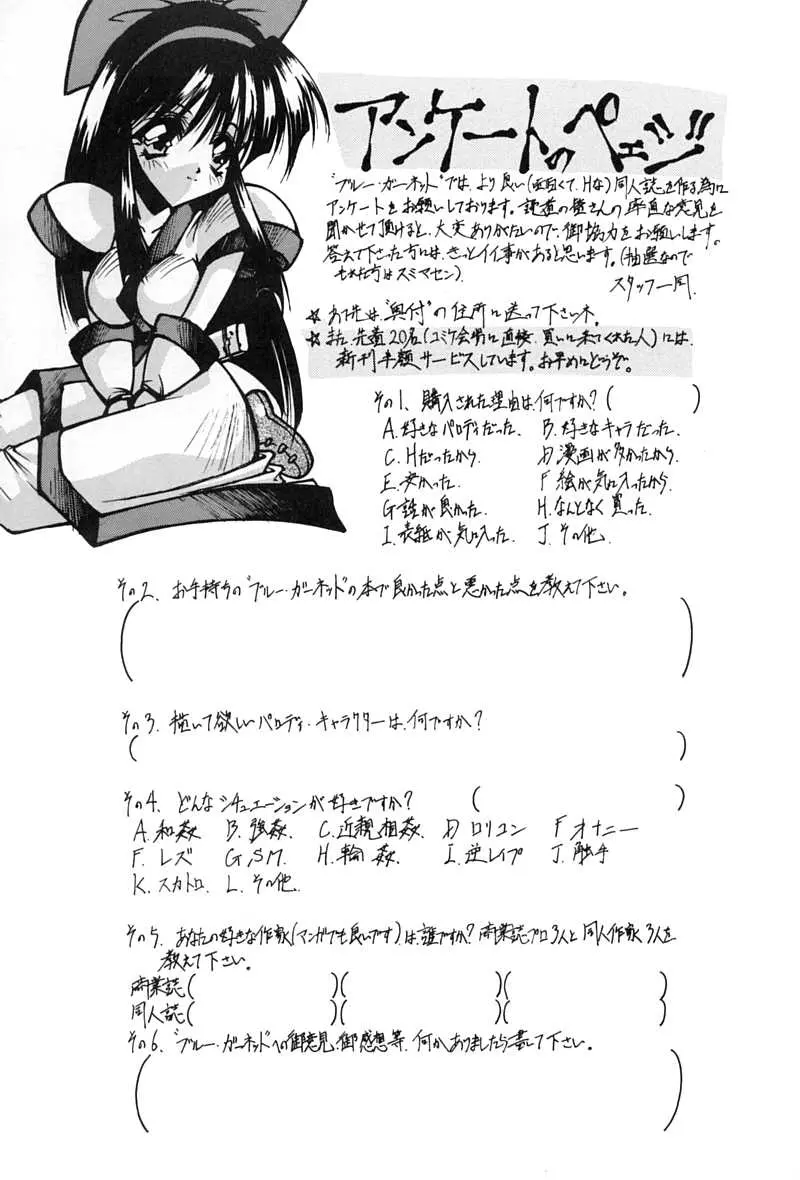 アンケートのページ!!
"ブルー・ガーネット"では、より良い(面白くて、Hな)同人誌を作る為に
アンケートをお願いしております。読者の皆さんの率直な意見を
聞かせて頂けると、大変ありがたいので、御協力をお願いします。
答えて下さった方には、きっとイイ事があると思います。(抽選なので
もれた方はスミマセン)
スタッフ一同.
☆あて先は、"奥付"の住所に送って下さいネ。
☆また、先着20名(コミケ会場に直接、買いに来てくれた人)には、
新刊半額サービスしています。お早めにどうぞ。
その1、購入された理由は、何ですか?( )
A.好きなパロディだった. B.好きなキャラだった.
C.Hだったから. D.漫画が多かったから.
E.安かった. F.絵が気に入ったから.
G.話が良かった. H.なんとなく買った.
I.表紙が気に入った. J.その他.
その2、お手持ちの"ブルー・ガーネット"の本で良かった点と悪かった点を教えて下さい。
( )
その3、描いて欲しいパロディ・キャラクターは、何ですか?
( )
その4、どんなシチュエーションが好きですか? ( )
A.和姦 B.強姦. C.近親相姦. D ロリコン F オナニー
F.レズ G.S.M. H.輪姦. I.逆レイプ J.触手
K.スカトロ. L.その他.
その5、あなたの好きな作家(マンガでも良いです)は、誰ですか?商業誌プロ3人と同人作家3人を
教えて下さい。
商業誌( )( )( )
同人誌( )( )( )
その6、"ブルー・ガーネット"への御意見、御感想等、何かありましたら書いて下さい。
( )